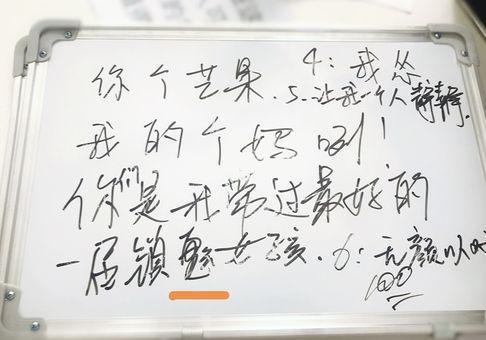 你个芒果. 4:我怂
5.让我一个人静静.
我的个妈咧!
你们是我带过最好的
一届镇魂女孩. 6:无颜以
100